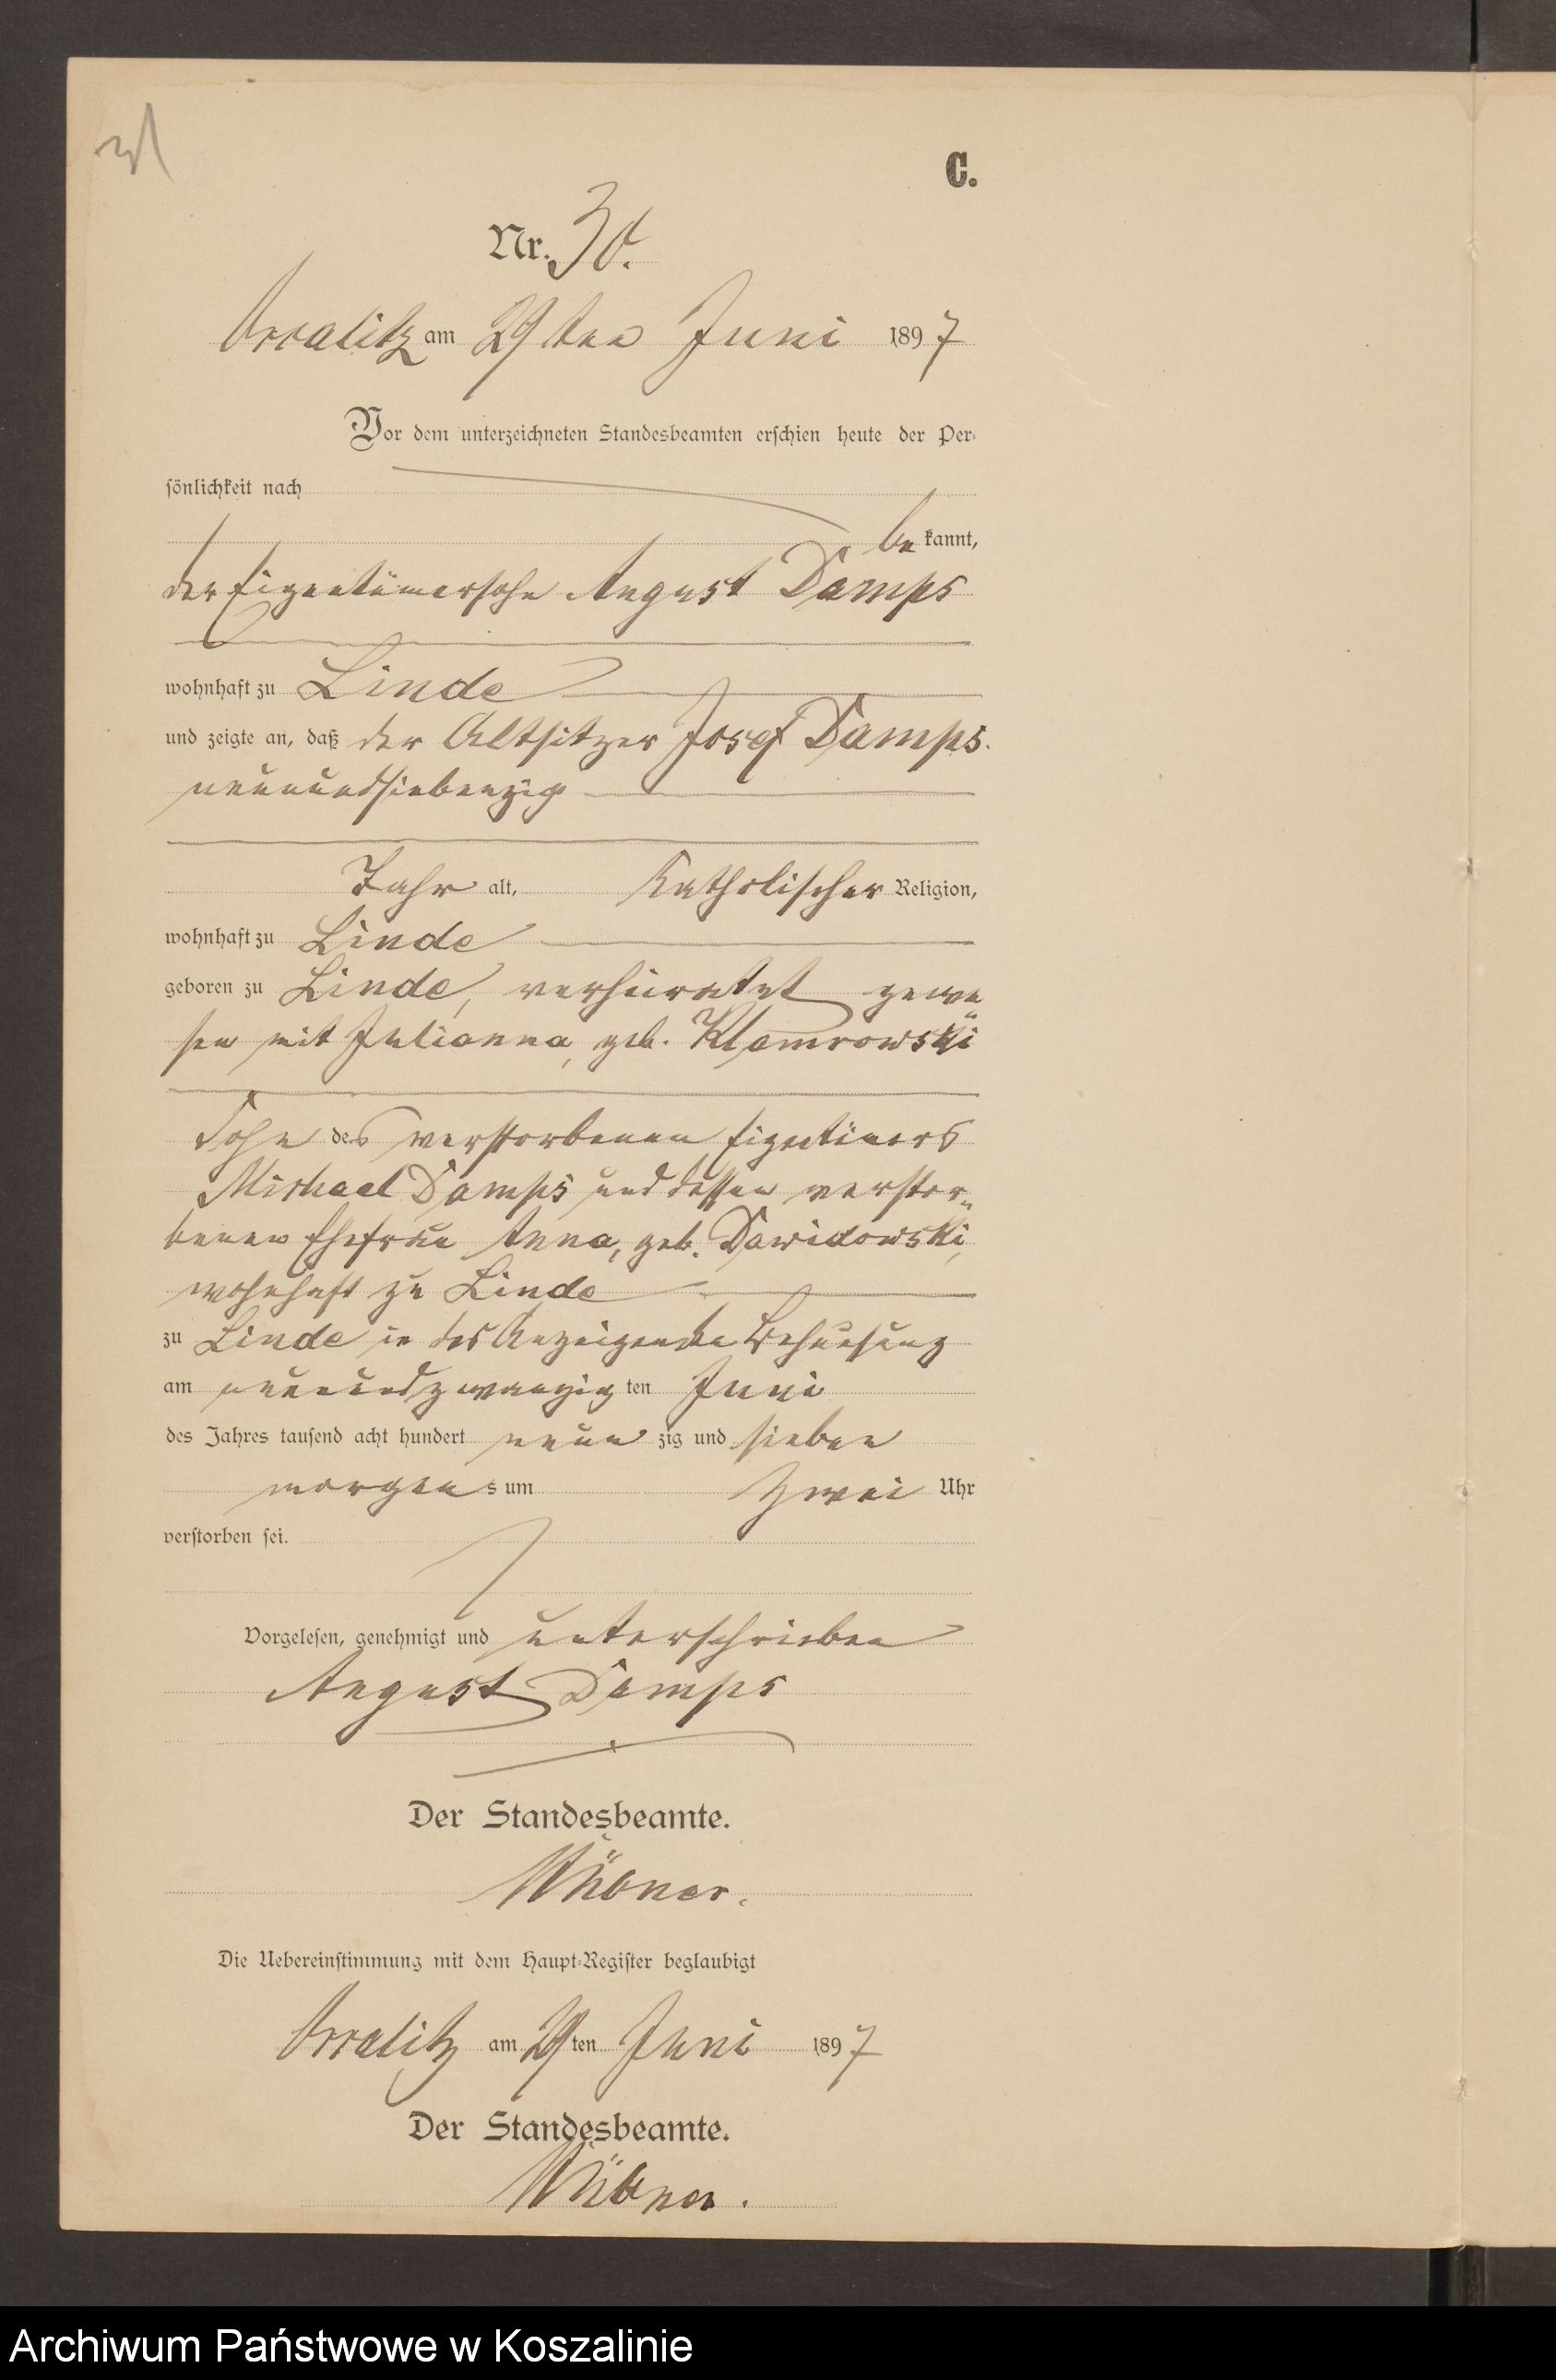 C.
Nr. 30.
am 29ten Juni 1897
Vor dem unterzeichneten Standesbeamten erschien heute der Per-
sönlichkeit nach
bekannt,
der Eigentümersohn August Damps
wohnhaft zu Linde
und zeigte an, daß der Altsitzer Josef Damps.
neunundsiebenzig
Jahr alt, Katholischer Religion,
wohnhaft zu Linde
geboren zu Linde, verheiratet gewe
sen mit Julianna, geb. Klamrowski
Sohn des verstorbenen Eigentümers
Michael Damps und dessen verstor-
benen Ehefrau Anna, geb. Dawidowski,
wohnhaft zu Linde
zu Linde in des Anzeigenden Behausung
am neunundzwanzigten Juni
des Jahres tausend acht hundert neunzig und sieben
morgens um zwei Uhr
verstorben sei.
Vorgelesen, genehmigt und unterschrieben
August Damps
Der Standesbeamte.
Die Uebereinstimmung mit dem Haupt-Register beglaubigt
am 29ten Juni 1897
Der Standesbeamte.
Archiwum Państwowe w Koszalinie